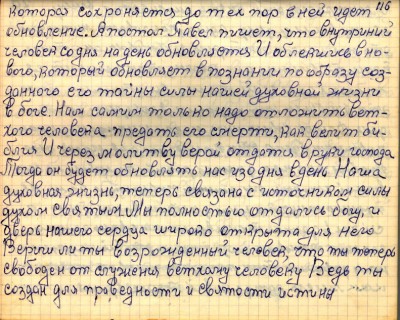 116
которая сохроняется до тех пор в ней идет
обновление. Апостол Павел пишет, что внутриний
человек со дня на день обновляется И облекшись в но-
вого, который обновляет в познании по образу соз-
данного его тайны силы нашей духовной жизни
в боге. Нам самим только надо отложить вет-
хого человека предать его смерти, как велит би-
блия И через молитву верой отдатся в руки господа
Тогда он будет обновлять нас изо дня в день Наша
духовная жизнь, теперь связана с источником силы
духом святым. Мы полностью отдались богу, и
дверь нашего сердца широко открыта для него
Вериш ли ты возрожденный человек, что ты теперь
свободен от служения ветхому человеку Ведь ты
создан для праведности и святости истины